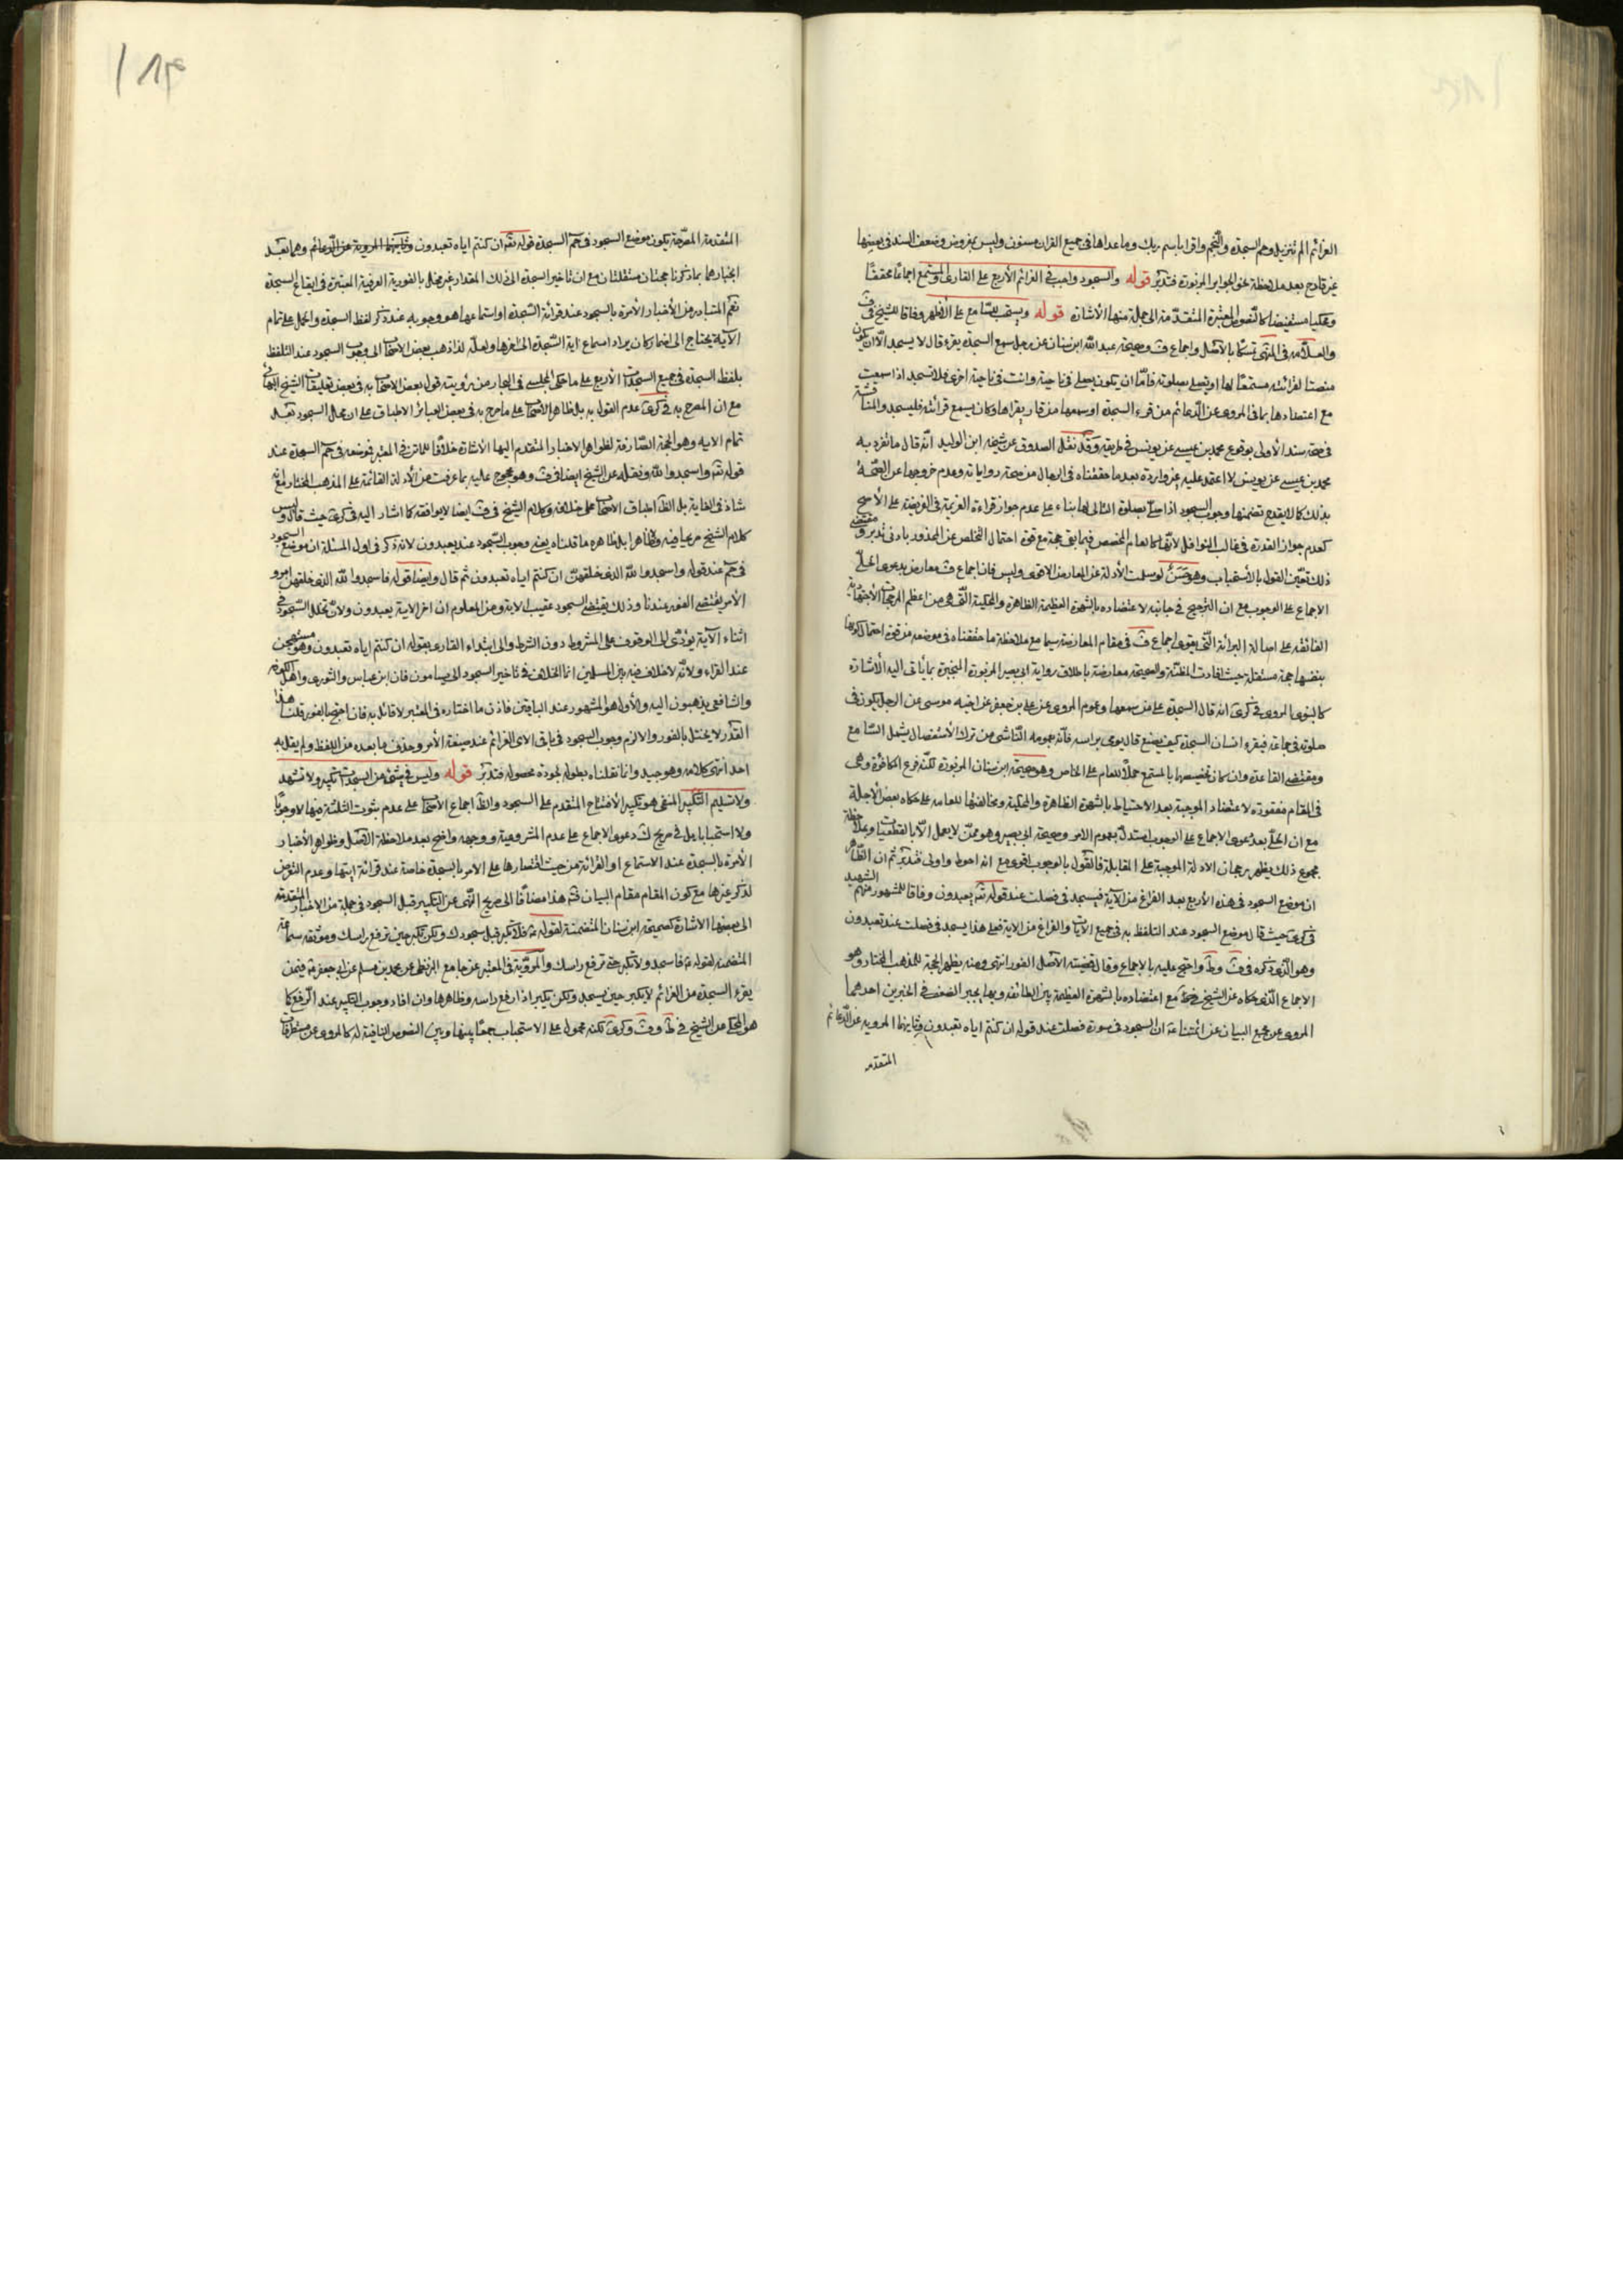 العزائم الم تنزيل وحم السجدة والنجم واقرا باسم ربك وما عداها فى جميع القران مسنون وليس بمفروض وضعف السند فى بعضها
غير قادح بعد ملاحظة نحو الجوابر المزبورة فتدبّر قوله والسجود واجب فى العزائم الأربع على القارى والمستمع اجماعًا محققًا
ومحكيا مستفيضا كالنصوص المعتبرة المتقدّمة الى جملة منها الأشارة قوله ويستحب للسّامع على الأظهر وفاقا للشيخ فى ف
والعلّامه فى المنتهى تمسّكا بالأصل واجماع ف وصحيحة عبد الله ابن سنان عن رجل سمع السجدة يقرء قال لا يسجد الّا ان يكون
منصتا لقرائته مستمعًا لها او يصلى بصلوته فامّا ان يكون يصلى فى ناحية وانت فى ناحية اخرى فلا تسجد اذا سمعت
مع اعتضادها بما فى المروى عن الدّعائم من قرء السجدة او سمعها من قار يقراها وكان يسمع قرائته فليسجد والمناقشة
فى صحة سند الأولى بوقوع محمد بن عيسى عن يونس فى طريقه وقد نقل الصدوق عن شيخه ابن الوليد انّه قال ما تفرد به
محمد بن عيسى عن يونس لا اعتمد عليه غير واردة بعد ما حققناه فى الرجال من صحة رواياته وعدم خروجها عن الصّحة
بذلك كما لا يقدح تضمنها وجوب السجود اذا صلّى بصلوة التالى لها بناء على عدم جواز قراءة العزيمة فى الفريضة على الأصح
كعدم جواز القدوة فى غالب النوافل لانّها كالعام المخصص فيما بقى حجة مع قوة احتمال التخلص عن المحذور بادنى تدبر ومقتضى
ذلك تعيّن القول بالأستحباب وهو حَسَنٌ لو سلمت الأدلة عن المعارض الاقوى وليس فان اجماع ف معارض بدعوى الحلّى
الاجماع على الوجوب مع ان الترجيح فى جانبه لاعتضاده بالشهرة العظيمة الظاهرة والمحكية الّتى هى من اعظم المرجحات الأجتهادية
الفائقة على اصالة البرائة الّتى بقوى اجماع ف فى مقام المعارضة سيما مع ملاحظة ما حققناه فى موضعه من قوة احتمال كونها
بنفسها حجة مستقلة حيث افادت المظنّة والصحيحة معارضة باطلاق رواية ابى بصير المزبورة المنجبرة بما يأتى اليه الأشارة
كالنبوى المروى فى كرى انه قال السجدة على من سمعها وعموم المروى عن على بن جعفر عن اخيه موسى عن الرجل يكون فى
صلوته فى جماعة فيقرء انسان السجدة كيف يصنع قال يومى براسه فانّه بعمومه النّاشى من ترك الأستفصال يشمل السّامع
ومقتضى القاعدة وان كان تخصيصها بالمستمع حملًا للعام على الخاص وهو صحيحة ابن سنان المزبورة لكنّه فرع المكافؤة وهى
فى المقام مفقودة لاعتضاد الموجبة بعد الاحتياط بالشهرة الظاهرة والمحكية ومخالفتها للعامه على ما حكاه بعض الأجلة
مع ان الحلّى بعد دعوى الاجماع على الوجوب استدلّ بعموم الامر وصحيحة ابى بصير وهو ممّن لا يعمل الّا بالقطعيّات وبملاحظة
مجموع ذلك يظهر رجحان الادلة الموجبة على المقابلة فالقول بالوجوب اقوى مع انه احوط واولى فتدبّر ثم ان الظّاهر
ان موضع السجود فى هذه الأربع بعد الفراغ من الآية فيسجد فى فصلت عند قوله تعالى يعبدون وفاقا للمشهور منهم الشهيد
فى كرى حيث قال موضع السجود عند التلفظ به فى جميع الآيات والفراغ من الاية فعلى هذا يسجد فى فصلت عند تعبدون
وهو الّذى ذكره فى ف وط واحتج عليه بالاجماع وقال قضيته الأصل الفور انتهى ومنه يظهر الحجة للمذهب المختار وهو
الاجماع الّذى حكاه عن الشيخ مع اعتضاده بالشهرة العظيمة بين الطائفه وبها يجبر الضعف فى الخبرين احدهما
المروى عن مجمع البيان عن ائمتنا عة ان السجود فى سورة فصلت عند قوله ان كنتم اياه تعبدون وثانيهما المرويه عن الدّعائم
المتقدمه
المتقدمة المصرّحة بكون موضع السجود فى حم السجدة قوله تعالى ان كنتم اياه تعبدون وثانيهما المروية عن الدعائم وهما بعد
انجبارهما بما ذكرنا حجتان مستقلتان مع ان تأخير السجدة الى ذلك المقدار غير مخل بالفورية العرفية المعتبرة فى ايقاع السجدة
نعم المتبادر من الأخبار الآمرة بالسجود عند قرائة السّجدة او استماعها هو وجوبه عند ذكر لفظ السجدة والحمل على تمام
الآية يحتاج الى اضمار كان يراد استماع اية السّجدة الى اخرها ولعلّه لذا ذهب بعض الاصحاب الى وجوب السجود عند التلفظ
بلفظ السجدة فى جميع السجدات الأربع على ما حكى المجلسى فى البحار من رؤيته قول بعض الاصحاب به فى بعض تعليقات الشيخ البهائى
مع ان المصرح به فى كرى عدم القول به بل ظاهر الاصحاب على ما صرح به فى بعض العبائر الاطباق على ان محل السجود بعد
تمام الايه وهو الحجة الصّارفة لظواهر الاخبار المتقدم اليها الأشارة خلافًا للماتن فى المعتبر فوضعه فى حم السجدة عند
قوله تعالى واسجدوا لله ونقله عن الشيخ ايضا فى ف وهو محجوج عليه بما عرفت من الأدلة القائمة على المذهب المختار مع انّه
شاذ فى الغاية بل الظاهر اطباق الاصحاب على خلافه وكلام الشيخ فى ف ايضا لا يوافقه كما اشار اليه فى كرى حيث قال وليس
كلام الشيخ صريحا فيه ولا ظاهرا بل ظاهره ما قلناه يعنى وجوب السّجود عند يعبدون لانه ذكر فى اول المسئلة ان موضع السجود
فى حم عند قوله واسجدوا لله الذى خلقهنّ ان كنتم اياه تعبدون ثم قال وايضا قوله فاسجدوا لله الذى خلقهن امر و
الأمر يقتضى الفور عندنا وذلك يقتضى السجود عقيب الاية ومن المعلوم ان اخر الاية يعبدون ولانّ تخلل السّجود فى
اثناء الآية يؤدّى الى الوقوف على المشروط دون الشرط والى ابتداء القارى بقوله ان كنتم اياه تعبدون وهو مستهجن
عند القراء ولانّه لا خلاف فيه بين المسلمين انما الخلاف فى تاخير السجود الى يسامون فان ابن عباس والثورى واهل الكوفه
والشافعى يذهبون اليه والأول هو المشهور عند الباقين فاذن ما اختاره فى المعتبر لا قائل به فان احتج بالفور قلنا هذا
القدر لا يختل بالفور والا لزم وجوب السجود فى باقى الاى العزائم عند صيغة الأمر وحذف ما بعده من اللفظ ولم يقل به
احد انتهى كلامه وهو جيد وانما نقلناه بطوله لجودة محصوله فتدبّر قوله وليس فى شىء من السجدات تكبير ولا تشهد
ولا تسليم التكبير المنفى هو تكبير الأفتتاح المتقدم على السجود والظاهر اجماع الأصحاب على عدم ثبوت الثلثة فيها لا وجوبًا
ولا استحبابا بل فى صريح ك دعوى الاجماع على عدم المشروعية ووجهه واضح بعد ملاحظة الأصل وظواهر الأخبار
الآمرة بالسجدة عند الاستماع او القرائة من حيث اقتصارها على الامر بالسجدة خاصة عند قرائة ايتها وعدم التعرض
لذكر غيرها مع كون المقام مقام البيان فتم هذا مضافًا الى صريح النّهى عن التكبير قبل السجود فى جملة من الاخبار المتقدمة
الى بعضها الاشارة كصحيحة ابن سنان المتضمنة لقوله ع فلا تكبر قبل سجودك ولكن تكبر حين ترفع راسك وموثقه سماعة
المتضمنه لقوله ع فاسجد ولا تكبر حتى ترفع راسك والمرويّة فى المعتبر عن جامع البزنطى عن محمد بن مسلم عن ابى جعفر ع فيمن
يقرء السجدة من العزائم لا يكبر حين يسجد ولكن يكبر اذا رفع راسه وظاهرها وان افاد وجوب التكبير عند الرفع كما
هو المحكى عن الشيخ فى ط وف وكرى لكنه محمول على الاستحباب جمعًا بينها وبين النصوص النافية له كالمروى عن مستطرفات